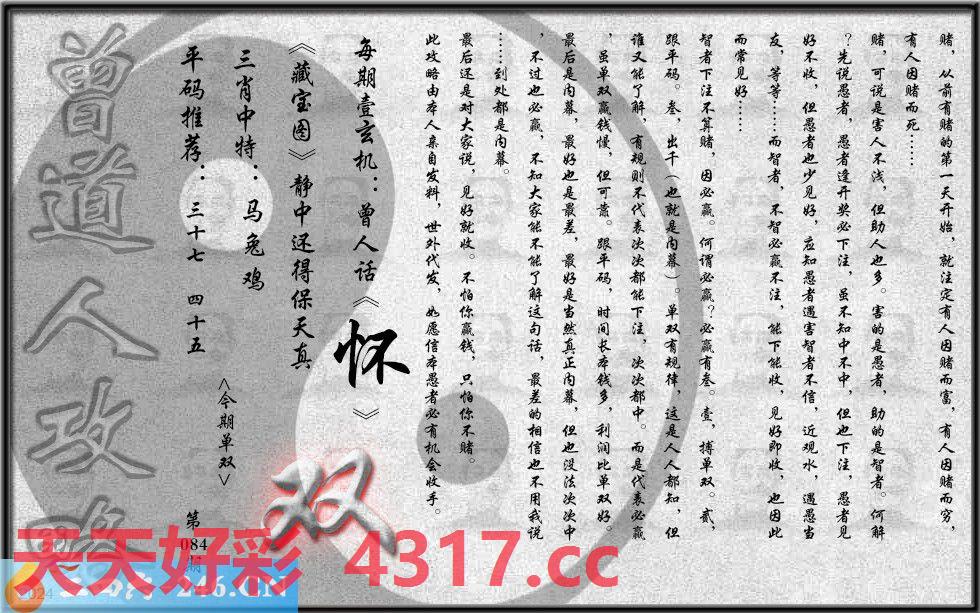 赌，从前有赌的第一天开始，就注定有人因赌而富，有人因赌而穷，
有人因赌而死……
赌，可说是害人不浅，但助人也多。害的是愚者，助的是智者。何解
？先说愚者，愚者逢开奖必下注，虽不知中不中，但也下注，愚者见
好不收，但愚者也少见好，应知愚者遇害智者不信，近观水，遇愚当
友，等等……而智者，不智必赢不注，能下能收，见好即收，也因此
而常见好……
智者下注不算赌，因必赢。何谓必赢？必赢有叁。壹，搏单双。贰，
跟平码。叁，出千（也就是内幕）。单双有规律，这是人人都知，但
谁又能了解，有规则不代表次次都能下注，次次都中。而是代表必赢
，虽单双赢钱慢，但可靠。跟平码，时间长本钱多，利润比单双好。
最后是内幕，最好也是最差，最好是当然真正内幕，但也没法次次中
，不过也必赢，不知大家能不能了解这句话，最差的相信也不用我说
……到处都是内幕。
最后还是对大家说，见好就收。不怕你赢钱，只怕你不赌。
此攻略由本人亲自发料，世外代发，如愿信本愚者必有机会收手。
每期壹玄机：曾人话《怀》
《藏宝图》静中还得保天真
三肖中特：马兔鸡
平码推荐：三十七 四十五
<今期单双>
双
第
084
期
曾道人攻略
天天好彩 4317.cc
246.CN
2024